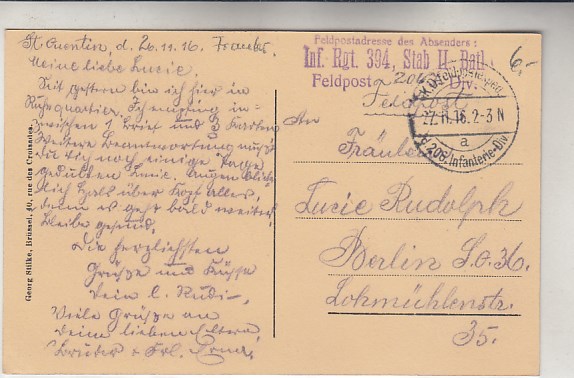 St. Quentin, d. 26.11.16. Frankr.
Meine liebe Lucie,
Seit gestern bin ich hier in
Ruhequartier. Ich empfing in-
zwischen 1 Brief und 3 Karten
Weitere Beantwortung mußt
Du Dich noch einige Tage
gedulden Lucie. Augenblick-
lich Hals über Kopf alles,
denn es geht bald weiter.
Bleibe gesund.
Die herzlichsten
Grüße und Küsse
Dein l. Rudi.
Viele Grüße an
Deine lieben Eltern,
Bruder + Frl. Erna.
Georg Stilke, Brüssel, 40, rue des Croisades.
Feldpostadresse des Absenders:
Inf. Rgt. 394, Stab II. Batl.
Feldpost 206 Div.
6,-
Feldpost
27.11.16.2-3N
a
206. Infanterie-Div
An
Fräulein
Lucie Rudolph
Berlin S.O. 36.
Lohmühlenstr.
35.